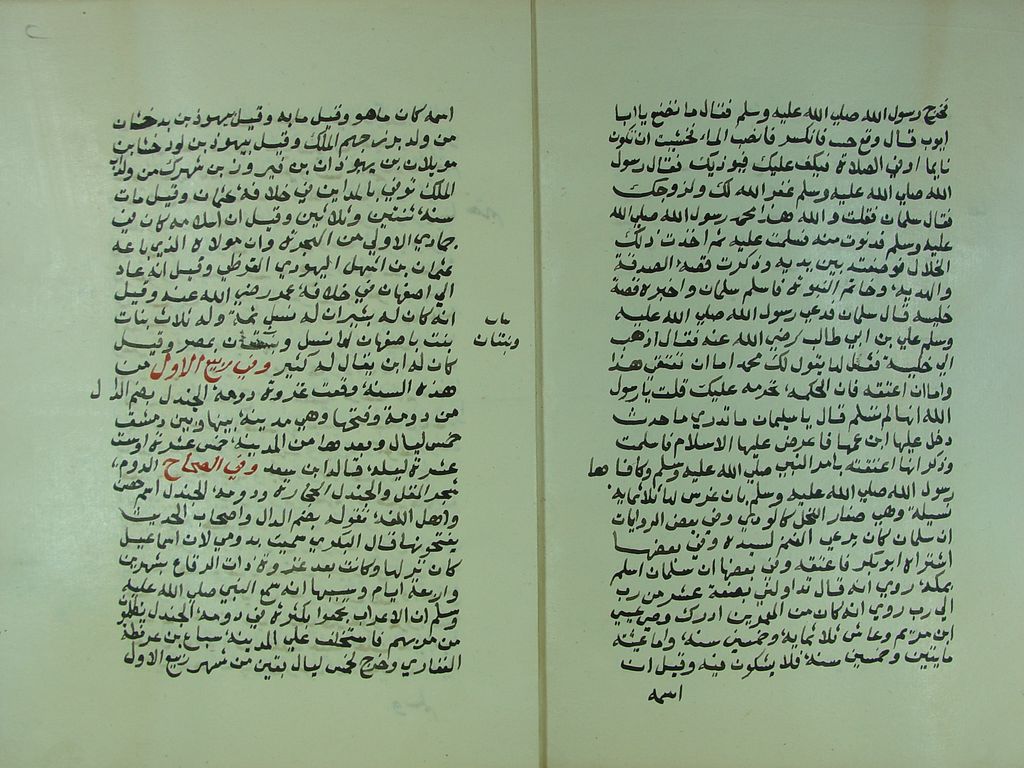 فخرج رسول الله صلي الله عليه وسلم فقال ما تصنع يا ابا
ايوب قال وقع حب فانكسر فانصب الماء فخشيت ان تكون
نايما اوفي الصلاة فيكف عليك فيوذيك فقال رسول
الله صلي الله عليه وسلم غفر الله لك ولزوجك
فقال سلمان فقلت والله هذا محمد رسول الله صلي الله
عليه وسلم فدنوت منه فسلمت عليه ثم اخذت ذلك
الخلال فوضعته بين يديه وذكرت قصة الصدقة
والهدية وخاتم النبوة فاسلم سلمان واخبره قصة
خليسه قال سلمان فدعي رسول الله صلي الله عليه
وسلم علي بن ابي طالب رضي الله عنه فقال اذهب
الي خليسه فقل لها يقول لك محمد اما ان تعتقي هذا
واما ان اعتقه فان الحكمه تحرمه عليك قلت يا رسول
الله انها لم تسلم قال يا سلمان ما تدري ما حدث
دخل عليها ابن عمها فاعرض عليها الاسلام فاسلمت
وذكر انها اعتقته بامر النبي صلي الله عليه وسلم وكافاها
رسول الله صلي الله عليه وسلم بان غرس لها ثلاثمايه
فسيلة وهي صغار النخل كالودي وفي بعض الروايات
ان سلمان كان يرعي الغنم لسيده وفي بعضها
اشتراه ابو بكر فاعتقه وفي بعضها ان سلمان اسلم
بمكه روي انه قال تداولني بضعة عشر من رب
الي رب روي انه كان من المعمرين ادرك وصي عيسي
ابن مريم وعاش ثلاثمايه وخمسين سنة واما
مايتين وخمسين سنة فلا يشكون فيه وقيل ان
اسمه
اسمه كان ماهو وقيل مابه وقيل بهبوذ بن بدخشان
من ولد الملك وقيل بهبوذ بن
بن يهودان بن فيروز بن شهرك من ولد اب
الملك توفي بالمداين في خلافة عثمان وقيل مات
سنة ثنتين وثلاثين وقيل ان اسلامه كان في
جمادي الاولي من الهجرة وان مولاه الذي باعه
عثمان بن اشهل اليهودي القرظي وقيل انه عاد
الي اصفهان في خلافة عمر رضي الله عنه وقيل
انه كان له بشيراز له نسل ثمة وله ثلاث بنات
بنت باصفهان لها نسل بمصر وقيل
بنات
وبنتان
كان له ابن يقال له كثير وفي ربيع الاول من
هذه السنة وقعت غزوة دومة الجندل بضم الدال
من دومة وفتحها وهي مدينة بينها وبين دمشق
خمس ليال وبعدها من المدينة خمس عشرة او ست
عشرة ليلة قاله ابن سعد وفي الصحاح الدوم
شجر المقل والجندل الحجارة ودومة الجندل اسم حصن
واهل اللغة تقوله بضم الدال واصحاب الحديث
يفتحونها قال البكري سميت بدومي لان اسماعيل
كان نزلها وكانت بعد غزوة ذات الرقاع بشهرين
واربعة ايام وسببها انه سمع النبي صلي الله عليه
وسلم ان الاعراب تجمعوا بكثرة في دومة الجندل يظلمون
من مر بهم فاستخلف علي المدينة سباع بن عرفطة
الغفاري وخرج لخمس ليال بقين من شهر ربيع الاول